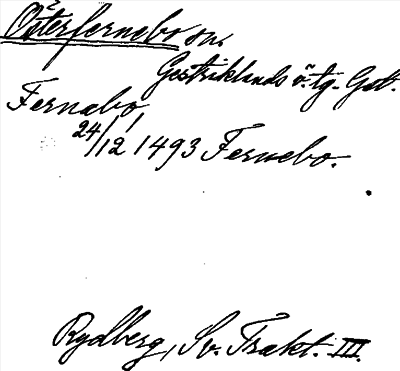 Österfernebo sn.
Gestriklands ö. tg. Gst.
Fernabo
24/12 1493 Fernebo.
Rydberg, Sv. Trakt. III.